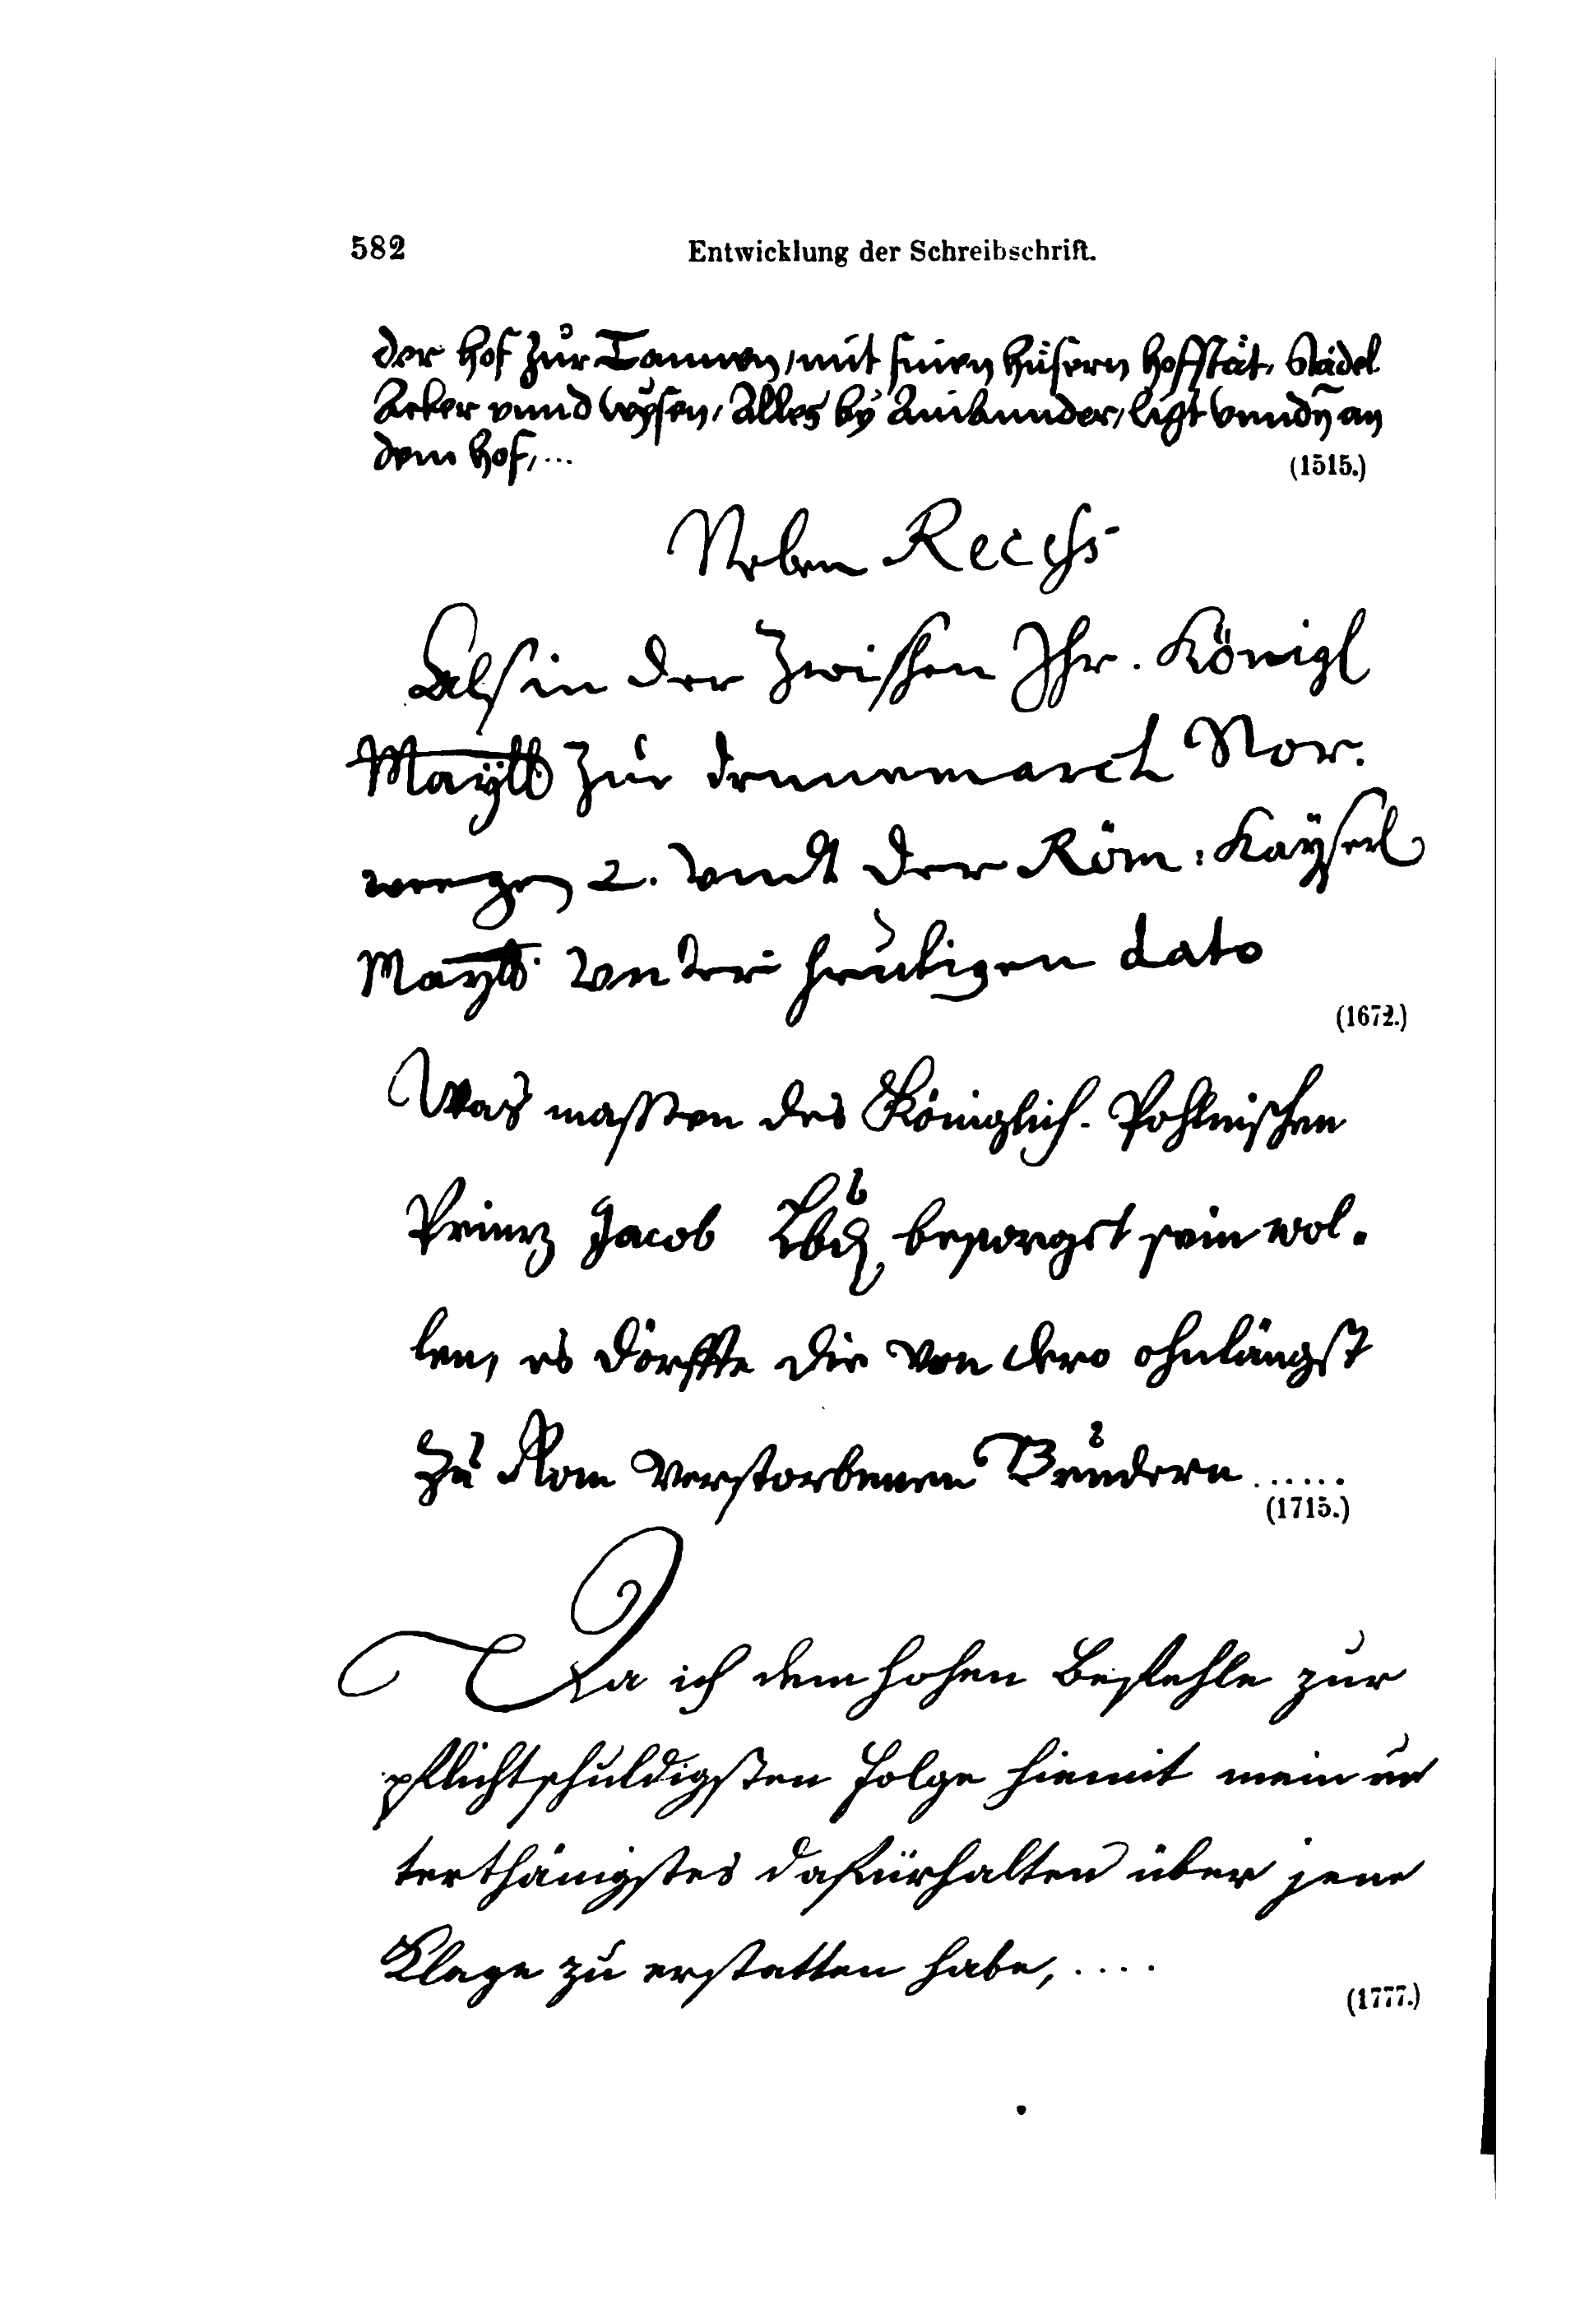 582 Entwicklung der Schreibschrift.
der hof zur Tannen, mit sinen hüsern hofstät, Stadel
Acker vnnd wysen, Alles by Ainannder, ligt vnndn an
dem hof, ...
(1515.)
Neben Recess
Als in der Zwischen Ihr. Königl
Maytt zur dennemarck Nor.
wegen 2. Vndt der Röm: Kaÿserl
Maytt. vnterm heutigen dato
(1672.)
Was massen des Königlich. Pohlnischen
Prinz Jacob Lbd besorget sein wol.
len, es dörffte die von dero ohnlängst
zu Rom verstorbenen Brudern ......
(1715.)
Da ich dem hohen Befehle zur
pflichtschuldigsten folge hiemit mein un
terthänigstes dafürhalten über jene
Klage zu erstatten habe, ....
(1777.)